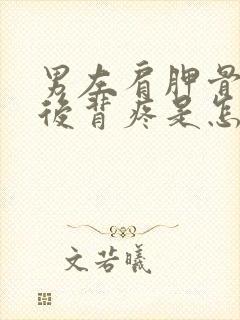 男左肩胛骨
後背疼是怎
文若曦